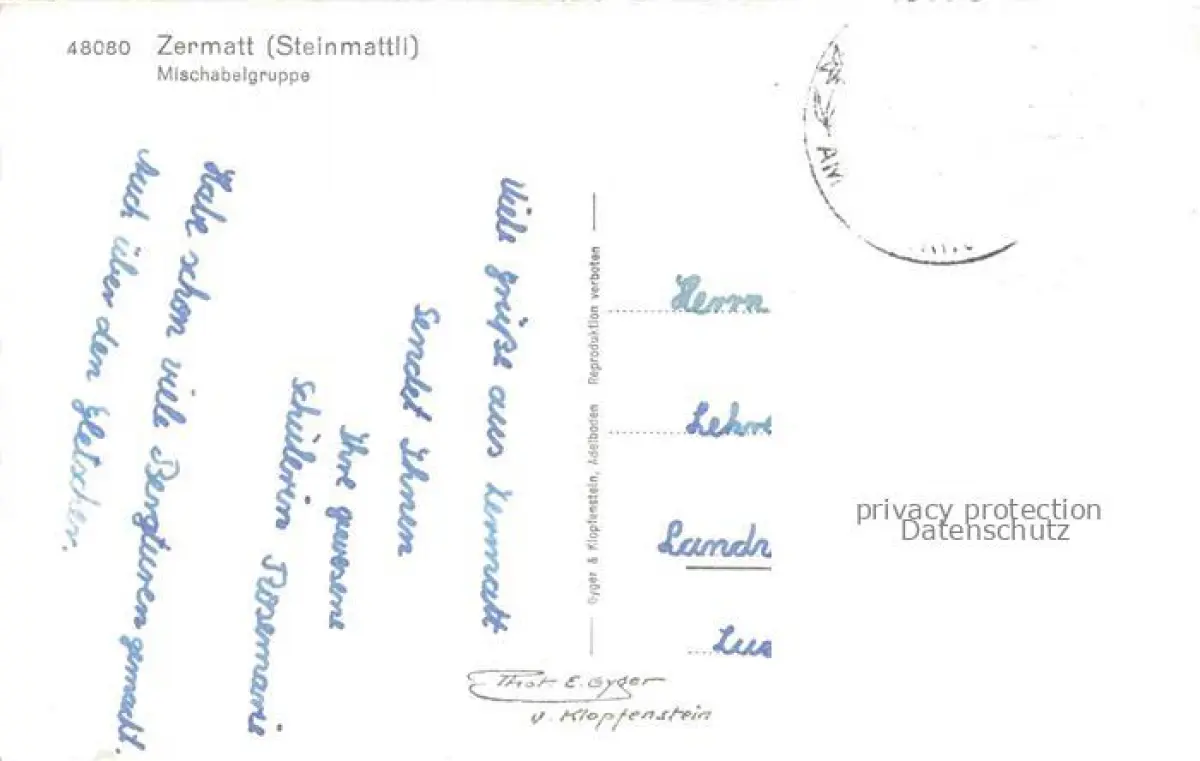 48080 Zermatt (Steinmattli)
Mischabelgruppe
Viele grüße aus Zermatt
Sendet Ihnen
Ihre gewesene
Schülerin Rosemarie
Habe schon viele Bergturen gemacht.
Auch über den gletscher.
Gyger & Klopfenstein, Adelboden Reproduktion verboten
Herrn
Lehre
Landr
Luz
Phot. E. Gyger
u. Klopfenstein
AM
privacy protection
Datenschutz